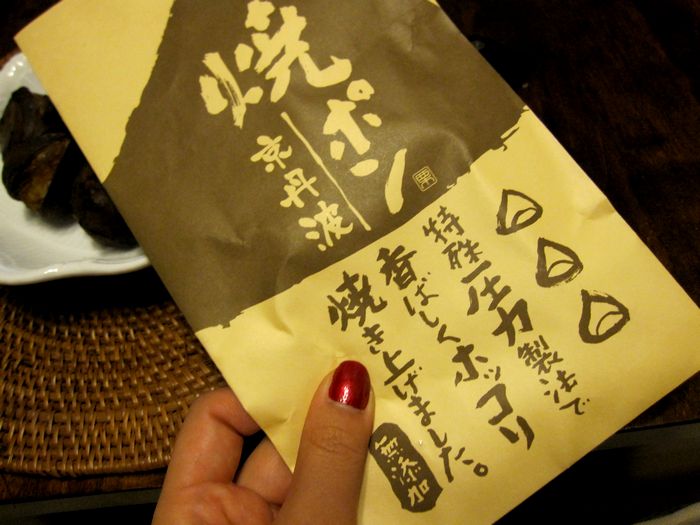 焼ポン
京丹波
栗
特殊圧力製法で
香ばしくホッコリ
焼き上げました。
無添加